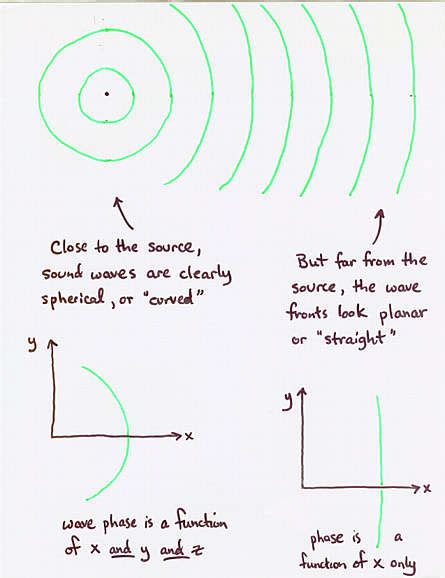 Close to the source,
sound waves are clearly
spherical, or "curved"
But far from the
source, the wave
fronts look planar
or "straight"
y
x
wave phase is a function
of x and y and z
y
x
phase is a
function of x only